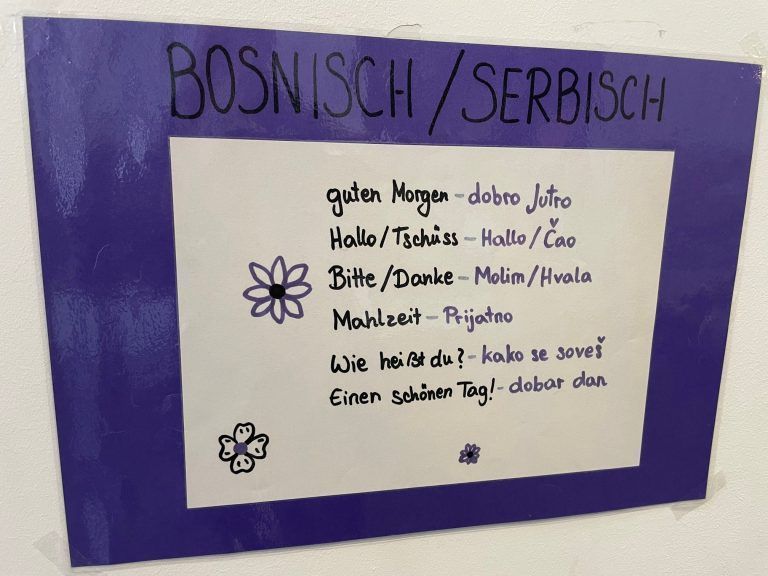 BOSNISCH/SERBISCH
guten Morgen - dobro Jutro
Hallo/Tschüss - Hallo/Čao
Bitte/Danke - Molim/Hvala
Mahlzeit - Prijatno
Wie heißt du? - kako se soveš
Einen schönen Tag! - dobar dan